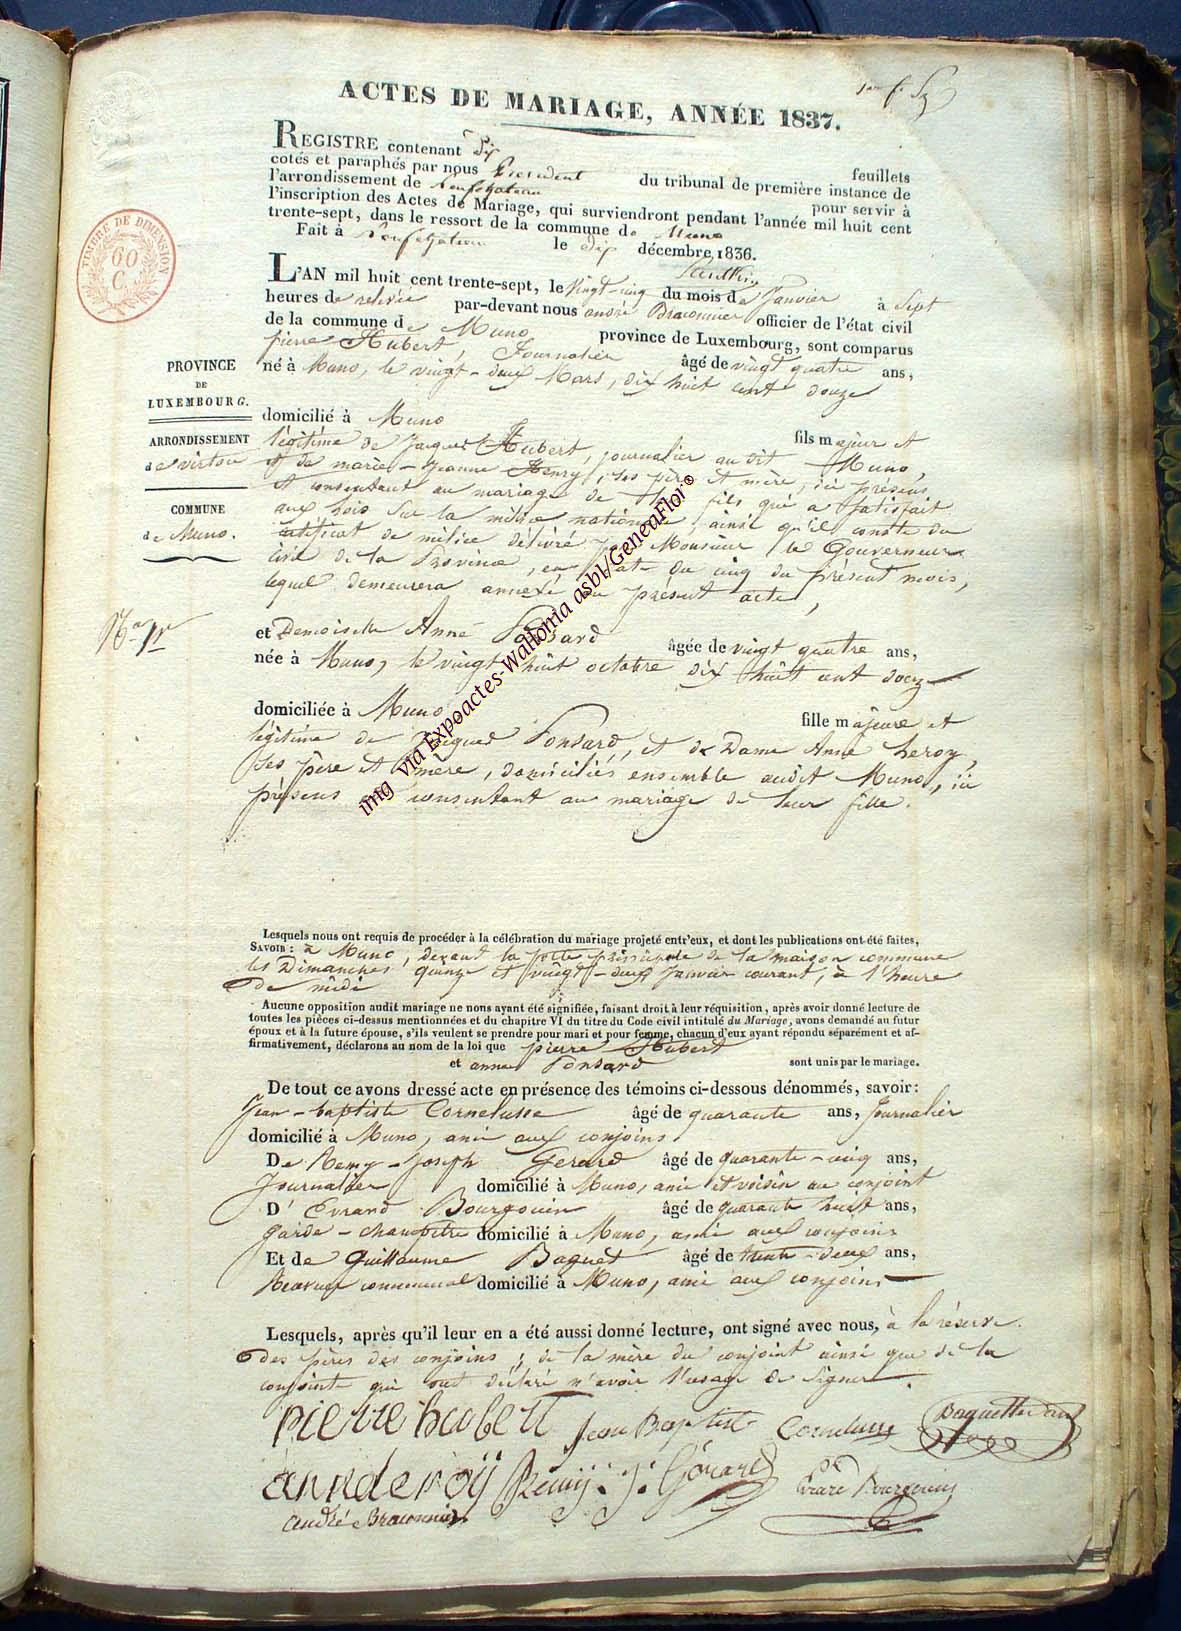 ACTES DE MARIAGE, ANNÉE 1837.
REGISTRE contenant Dix feuillets
cotés et paraphés par nous Président du tribunal de première instance de
l'arrondissement de Neufchateau pour servir à
l'inscription des Actes de Mariage, qui surviendront pendant l'année mil huit cent
trente-sept, dans le ressort de la commune de Muno
Fait à Neufchateau le dix décembre 1836.
TIMBRE DE DIMENSION
60
C.
L'AN mil huit cent trente-sept, le vingt-cinq du mois de Janvier à Sept
heures de relevée par-devant nous andré Braconnier officier de l'état civil
de la commune de Muno province de Luxembourg, sont comparus
pierre Hubert, Journalier âgé de vingt quatre ans,
né à Muno, le vingt-deux Mars, dix huit cent douze
PROVINCE
DE
LUXEMBOURG.
domicilié à Muno fils majeur et
ARRONDISSEMENT
de virton
légitime de Jacques Hubert, journalier au dit Muno,
et de marie-Jeanne Henry, ses père et mère, ici présens
et consentant au mariage de fils qui a satisfait
COMMUNE
de Muno.
aux lois sur la milice nationale, ainsi qu'il conste du
certificat de milice délivré par Monsieur le Gouverneur
civil de la Province, en date du cinq du présent mois,
lequel demeurera annexé au présent acte,
N.º 1er
et Demoiselle Anne Ponsard âgée de vingt quatre ans,
née à Muno, le vingt huit octobre dix huit cent douze
domiciliée à Muno fille majeure et
légitime de Jacques Ponsard, et de Dame Anne Leroy,
ses père et mère, domiciliés ensemble audit Muno, ici
présens et consentant au mariage de leur fille.
img via Expoactes-Wallonia asbl/GeneaFlor®
Lesquels nous ont requis de procéder à la célébration du mariage projeté entr'eux, et dont les publications ont été faites,
SAVOIR : à Muno, devant la porte principale de la maison commune
les Dimanches quinze et vingt-deux Janvier courant, à l'heure
de midi
Aucune opposition audit mariage ne nons ayant été signifiée, faisant droit à leur réquisition, après avoir donné lecture de
toutes les pièces ci-dessus mentionnées et du chapitre VI du titre du Code civil intitulé du Mariage, avons demandé au futur
époux et à la future épouse, s'ils veulent se prendre pour mari et pour femme, chacun d'eux ayant répondu séparément et af-
firmativement, déclarons au nom de la loi que pierre Hubert
et anne Ponsard sont unis par le mariage.
De tout ce avons dressé acte en présence des témoins ci-dessous dénommés, savoir:
Jean-baptiste Cornelusse âgé de quarante ans, Journalier
domicilié à Muno, ami aux conjoins
De Remy-Joseph Gerard âgé de quarante-cinq ans,
Journalier domicilié à Muno, ami et voisin au conjoint
D' Evrard Bourgouin âgé de quarante huit ans,
garde-champêtre domicilié à Muno, ami aux conjoins
Et de Guillaume Baquet âgé de trente-deux ans,
Receveur communal domicilié à Muno, ami aux conjoins
Lesquels, après qu'il leur en a été aussi donné lecture, ont signé avec nous, à la réserve
des pères des conjoins; de la mère du conjoint ainsi que de la
conjointe qui ont déclaré n'avoir l'usage de signer.
pierre hubert Jean Baptiste Cornelusse
anne leroÿ Remÿ: J: Gérard Evrard Bourgouin
André Braconnier